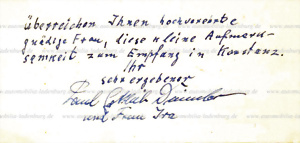 überreichen Ihnen hochverehrte
gnädige Frau, diese kleine Aufmerk-
samkeit zum Empfang in Konstanz.
Ihr
sehr ergebener
Paul Gottlieb Daimler
und Frau Ira